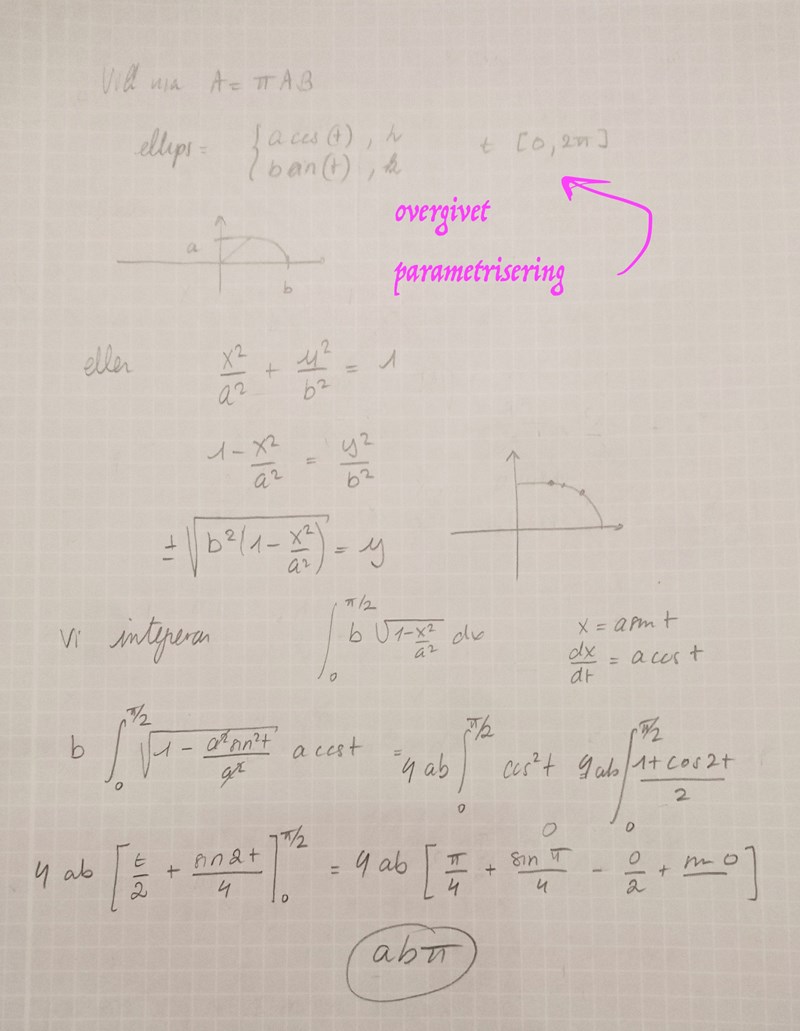 Vill visa A = π AB
ellips = { a cos(t), h
{ b sin(t), k
t [0, 2π]
overgivet
parametrisering
a
b
eller x²/a² + y²/b² = 1
1 - x²/a² = y²/b²
± √(b²(1 - x²/a²)) = y
Vi integrerar ∫₀^π/2 b √(1 - x²/a²) dx
x = a sin t
dx/dt = a cos t
b ∫₀^π/2 √(1 - a² sin² t / a²) a cos t = 4 ab ∫₀^π/2 cos² t 4 ab ∫₀^π/2 (1 + cos 2t)/2
4 ab [t/2 + sin 2t/4]₀^π/2 = 4 ab [π/4 + sin π/4 - 0/2 + sin 0]
0
abπ